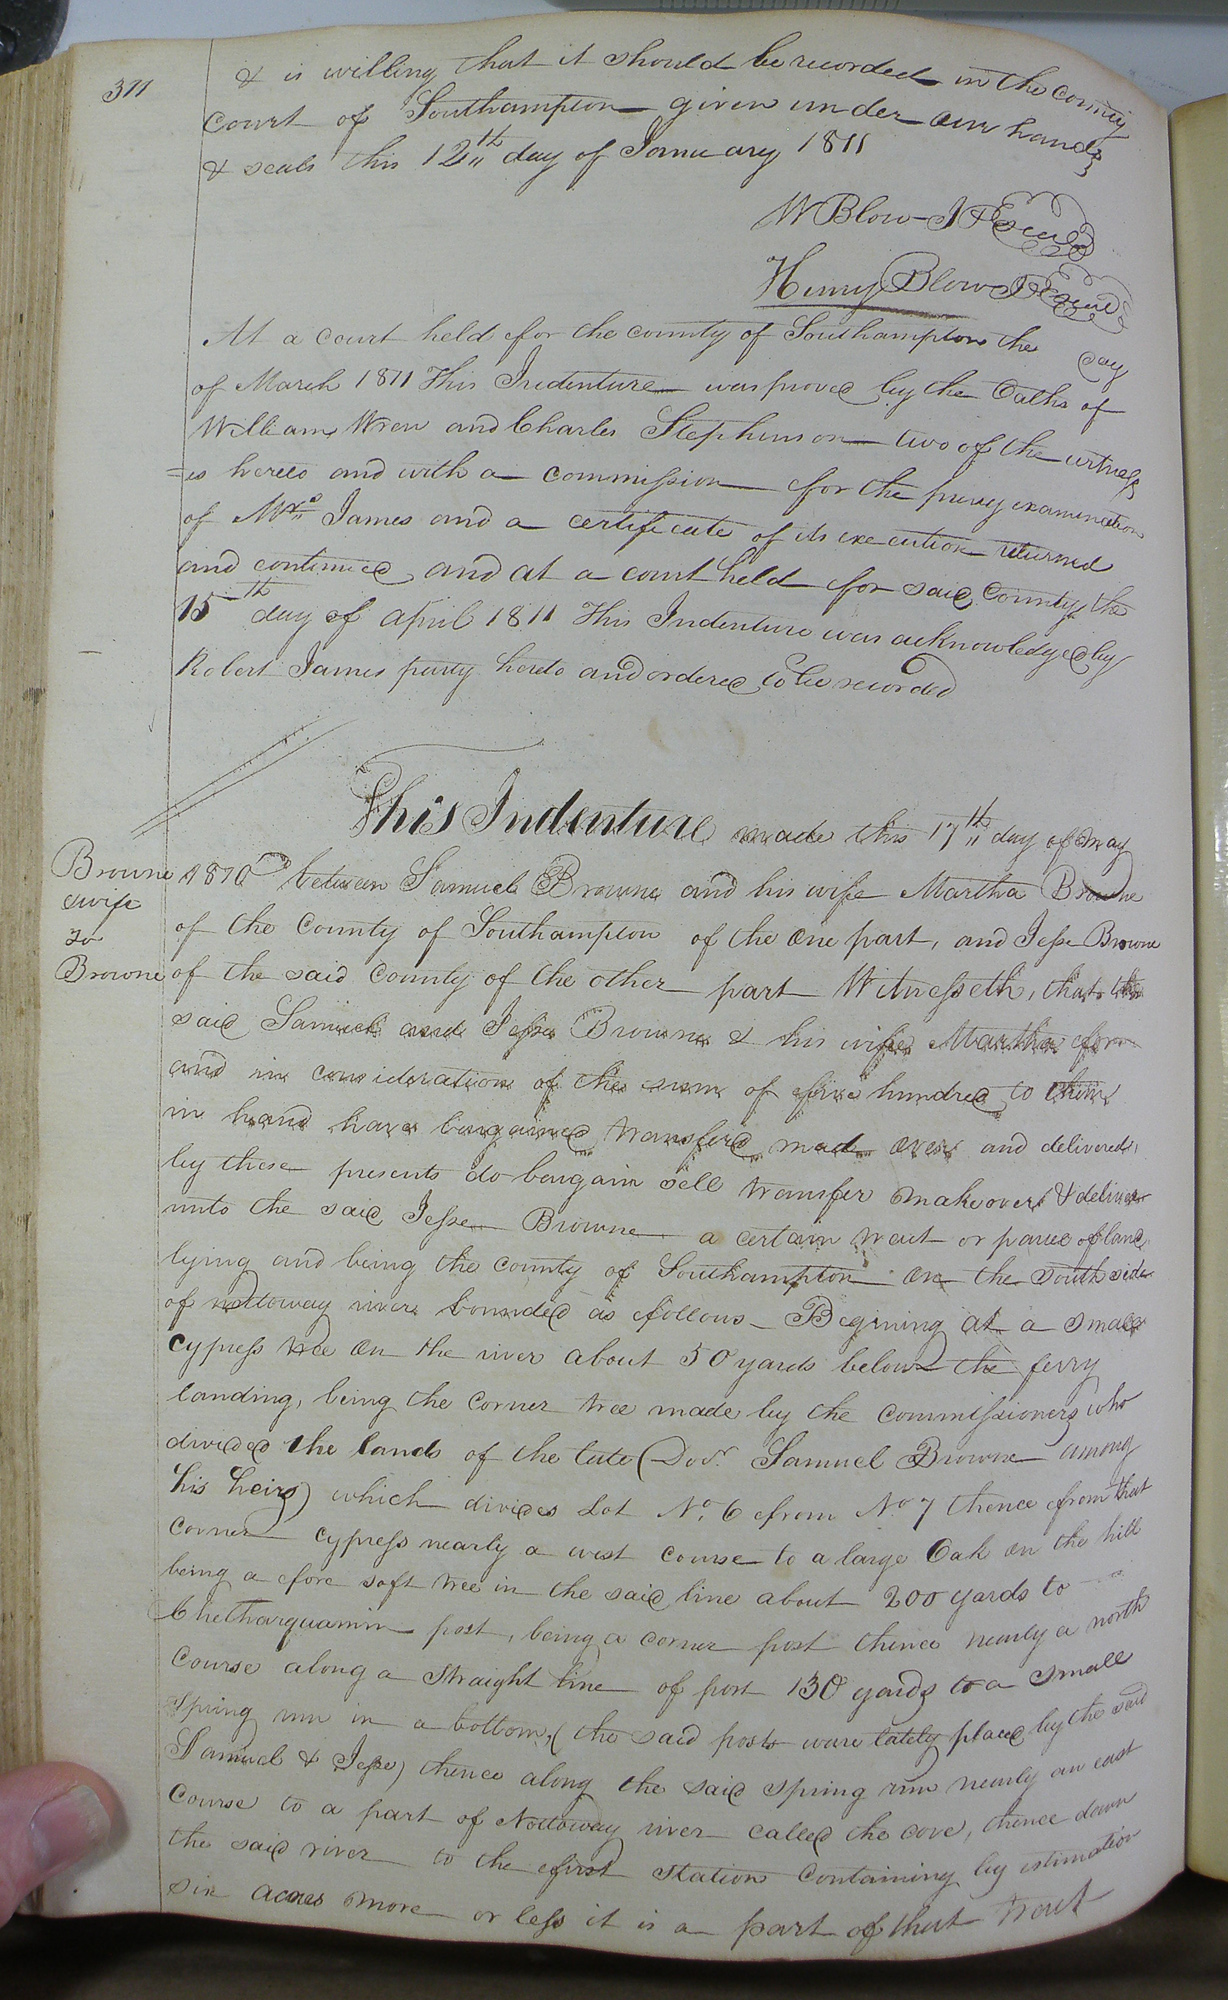 311
& is willing that it should be recorded in the county
court of Southampton given under our hands
& seals this 12th day of January 1811
W Blow J P seal
Henry Blow J P seal
At a court held for the county of Southampton the day
of March 1811 This Indenture was proved by the Oaths of
William Wren and Charles Stephenson two of the witness
=es hereto and with a commission for the privy examination
of Mrs James and a certificate of its execution returned
and continued, and at a court held for said County the
15th day of April 1811 This Indenture was acknowledged by
Robert James party hereto and ordered to be recorded
This Indenture made this 17th day of May
Browne
& wife
to
Browne
1810 between Samuel Browne and his wife Martha Browne
of the County of Southampton of the one part, and Jesse Browne
of the said County of the other part Witnesseth, that the
said Samuel and Jesse Browne & his wife Martha for
and in consideration of the sum of five hundred to them
in hand have bargained transferd made over and delivered,
by these presents do bargain sell transfer make over & deliver
unto the said Jesse Browne a certain tract or parcel of land
lying and being the county of Southampton on the south side
of nottoway river bounded as follows - Begining at a small
cypress tree on the river about 50 yards below the ferry
landing, being the corner tree made by the commissioners who
divided the lands of the late (Doctr. Samuel Browne among
his heirs) which divides Lot No. 6 from No 7 thence from that
corner cypress nearly a west course to a large Oak on the hill
being a fore soft tree in the said line about 200 yards to
post, being a corner post thence nearly a north
course along a straight line of post 130 yards to a small
spring run in a bottom, (the said posts ware lately placed by the said
Samuel & Jesse) thence along the said spring run nearly an east
course to a part of Nottoway river called the cove, thence down
the said river to the first station containing by estimation
six acres more or less it is a part of that tract